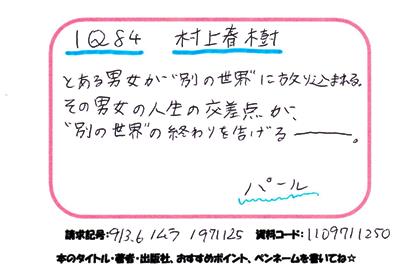 1Q84 村上春樹
とある男女が“別の世界”に放り込まれる。
その男女の人生の交差点が、
“別の世界”の終わりを告げる――。
パール
請求記号:913.6 ムラ 1971125 資料コード:1109711250
本のタイトル・著者・出版社、おすすめポイント、ペンネームを書いてね☆